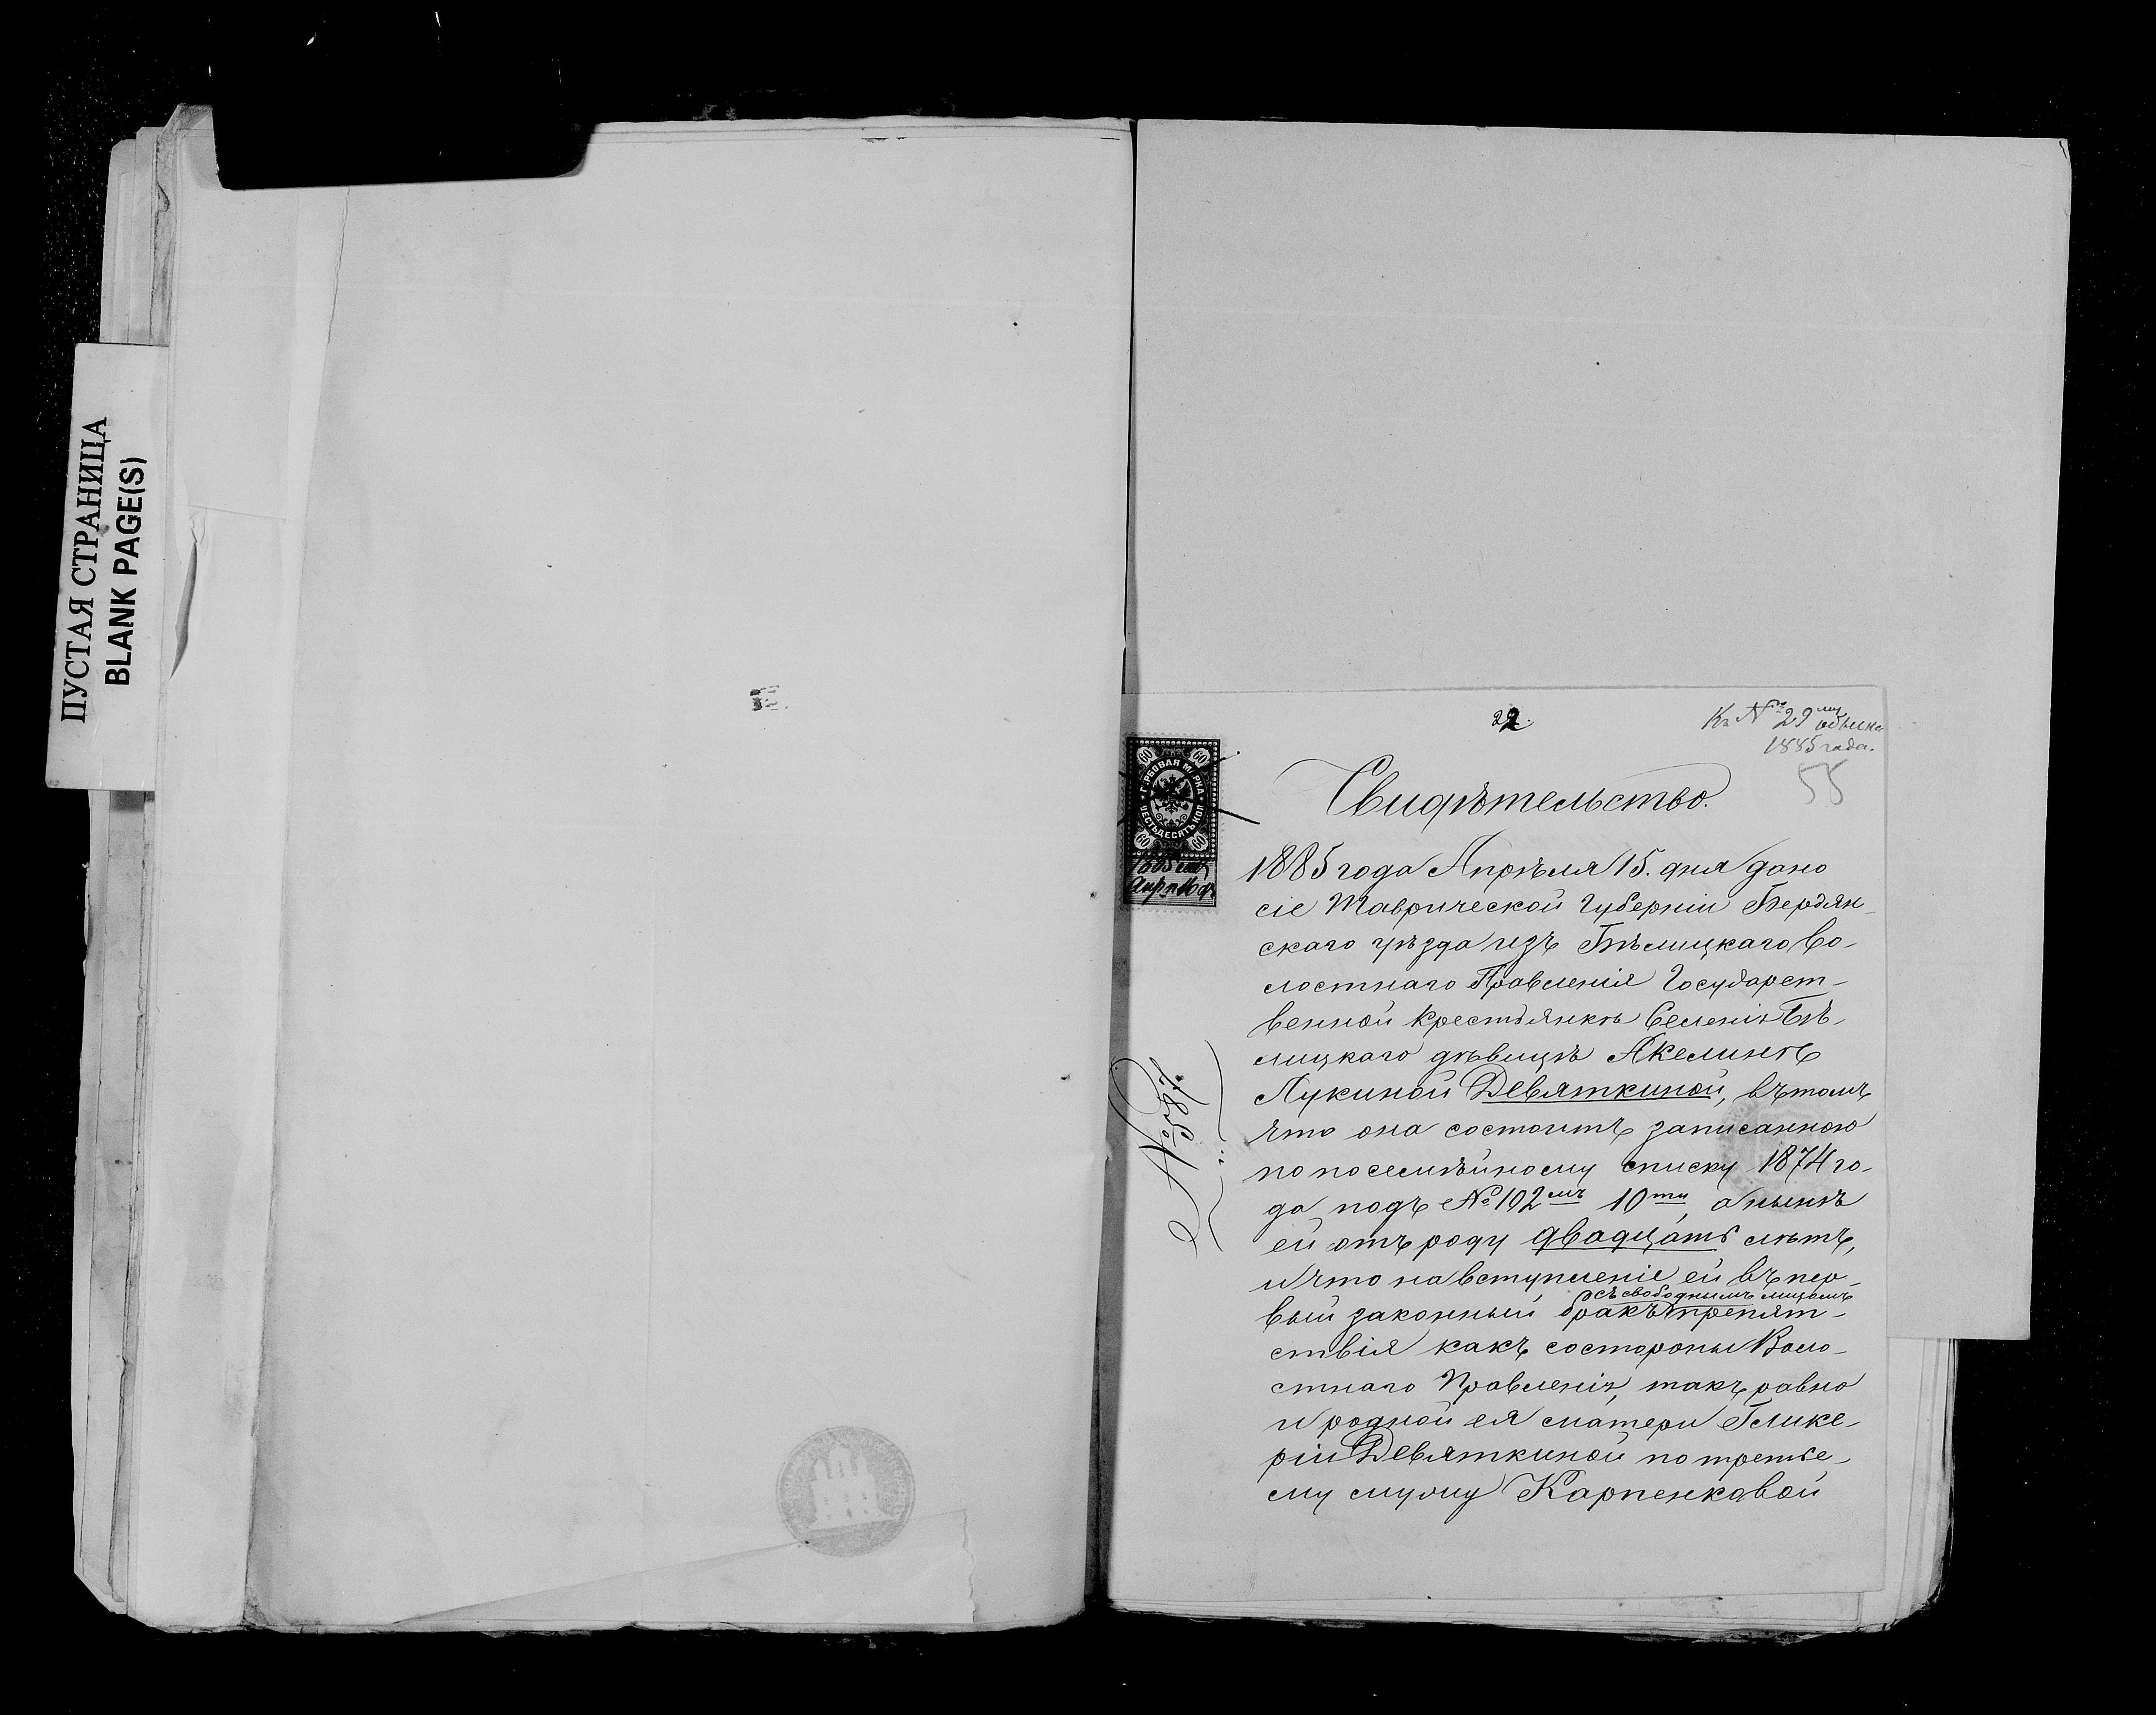 ПУСТАЯ СТРАНИЦА
BLANK PAGE(S)
22.
Къ № 29му обыска
1885 года.
55
ГЕРБОВАЯ МАРКА
ШЕСТЬДЕСЯТЪ КОП
60 60
60 60
1885 года
Апр
№ 587.
Свидѣтельство.
1885 года Апрѣля 15. дня дано
сіе Таврической Губерніи Бердян-
скаго уѣзда изъ Бѣлицкаго Во-
лостнаго Правленія Государст-
венной крестьянкѣ Селенія Бѣ-
лицкаго дѣвицѣ Акелинѣ
Лукиной Девяткиной, въ томъ
что она состоитъ записанною
по посемѣйному списку 1874 го-
да подъ № 102мъ 10ти, а нынѣ
ей отъ роду двадцать лѣтъ,
и что на вступленіе ей въ пер-
съ свободнымъ лицомъ
вый законный бракъ препят-
ствія какъ состороны Воло-
стнаго Правленія, такъ равно
и родной ея матери Глике-
ріи Девяткиной по третье-
му мужу Карпенковой